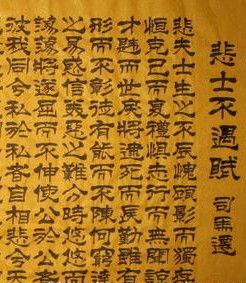 悲士不遇賦
司馬遷
悲夫士生之不辰愧顧影而獨存
恒克己而復禮懼志行而無聞諒
才韙而世戾將逮死而長勤雖有
形而不彰徒有能而不陳何窮達
之易惑信美惡之難分時悠悠而
蕩蕩將遂屈而不伸使公於公者
彼我同兮私於私者自相悲兮天